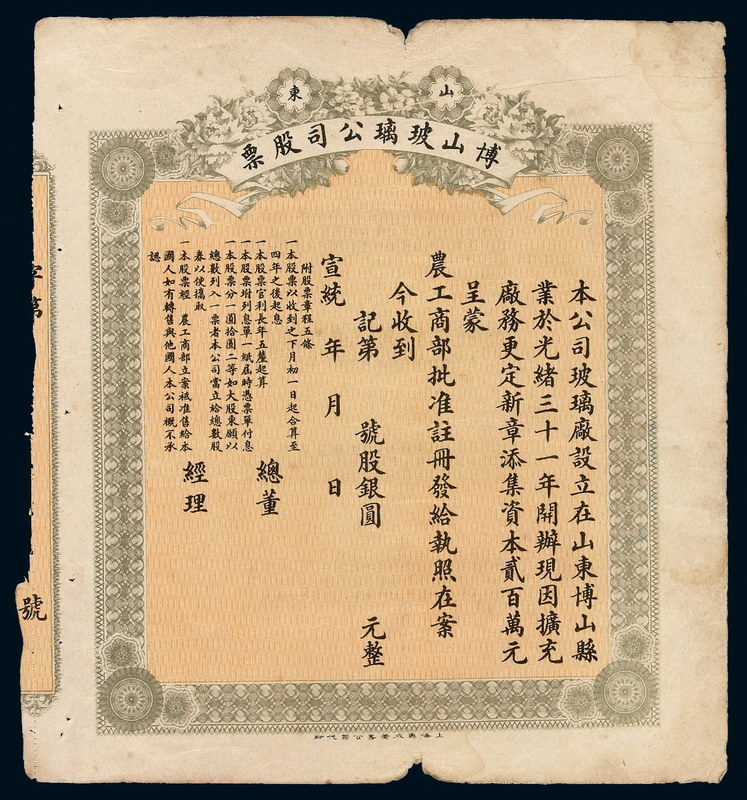 山東
博山玻璃公司股票
本公司玻璃廠設立在山東博山縣
業於光緒三十一年開辦現因擴充
廠務更定新章添集資本貳百萬元
呈蒙
農工商部批准註冊發給執照在案
今收到
記第 號股銀圓 元整
宣統 年 月 日
附股票章程五條
一本股票以收到之下月初一日起合算至
四年之後起息
一本股票官利長年五釐起算
一本股票坿列息單一紙屆時憑票單付息
一本股票分一圓拾圓二等如大股東願以
總數列入一票者本公司當立給總數股
券以便攜取
一本股票經 農工商部立案祇准售給本
國人如有轉售與他國人本公司概不承
認
總董
經理
字第
號